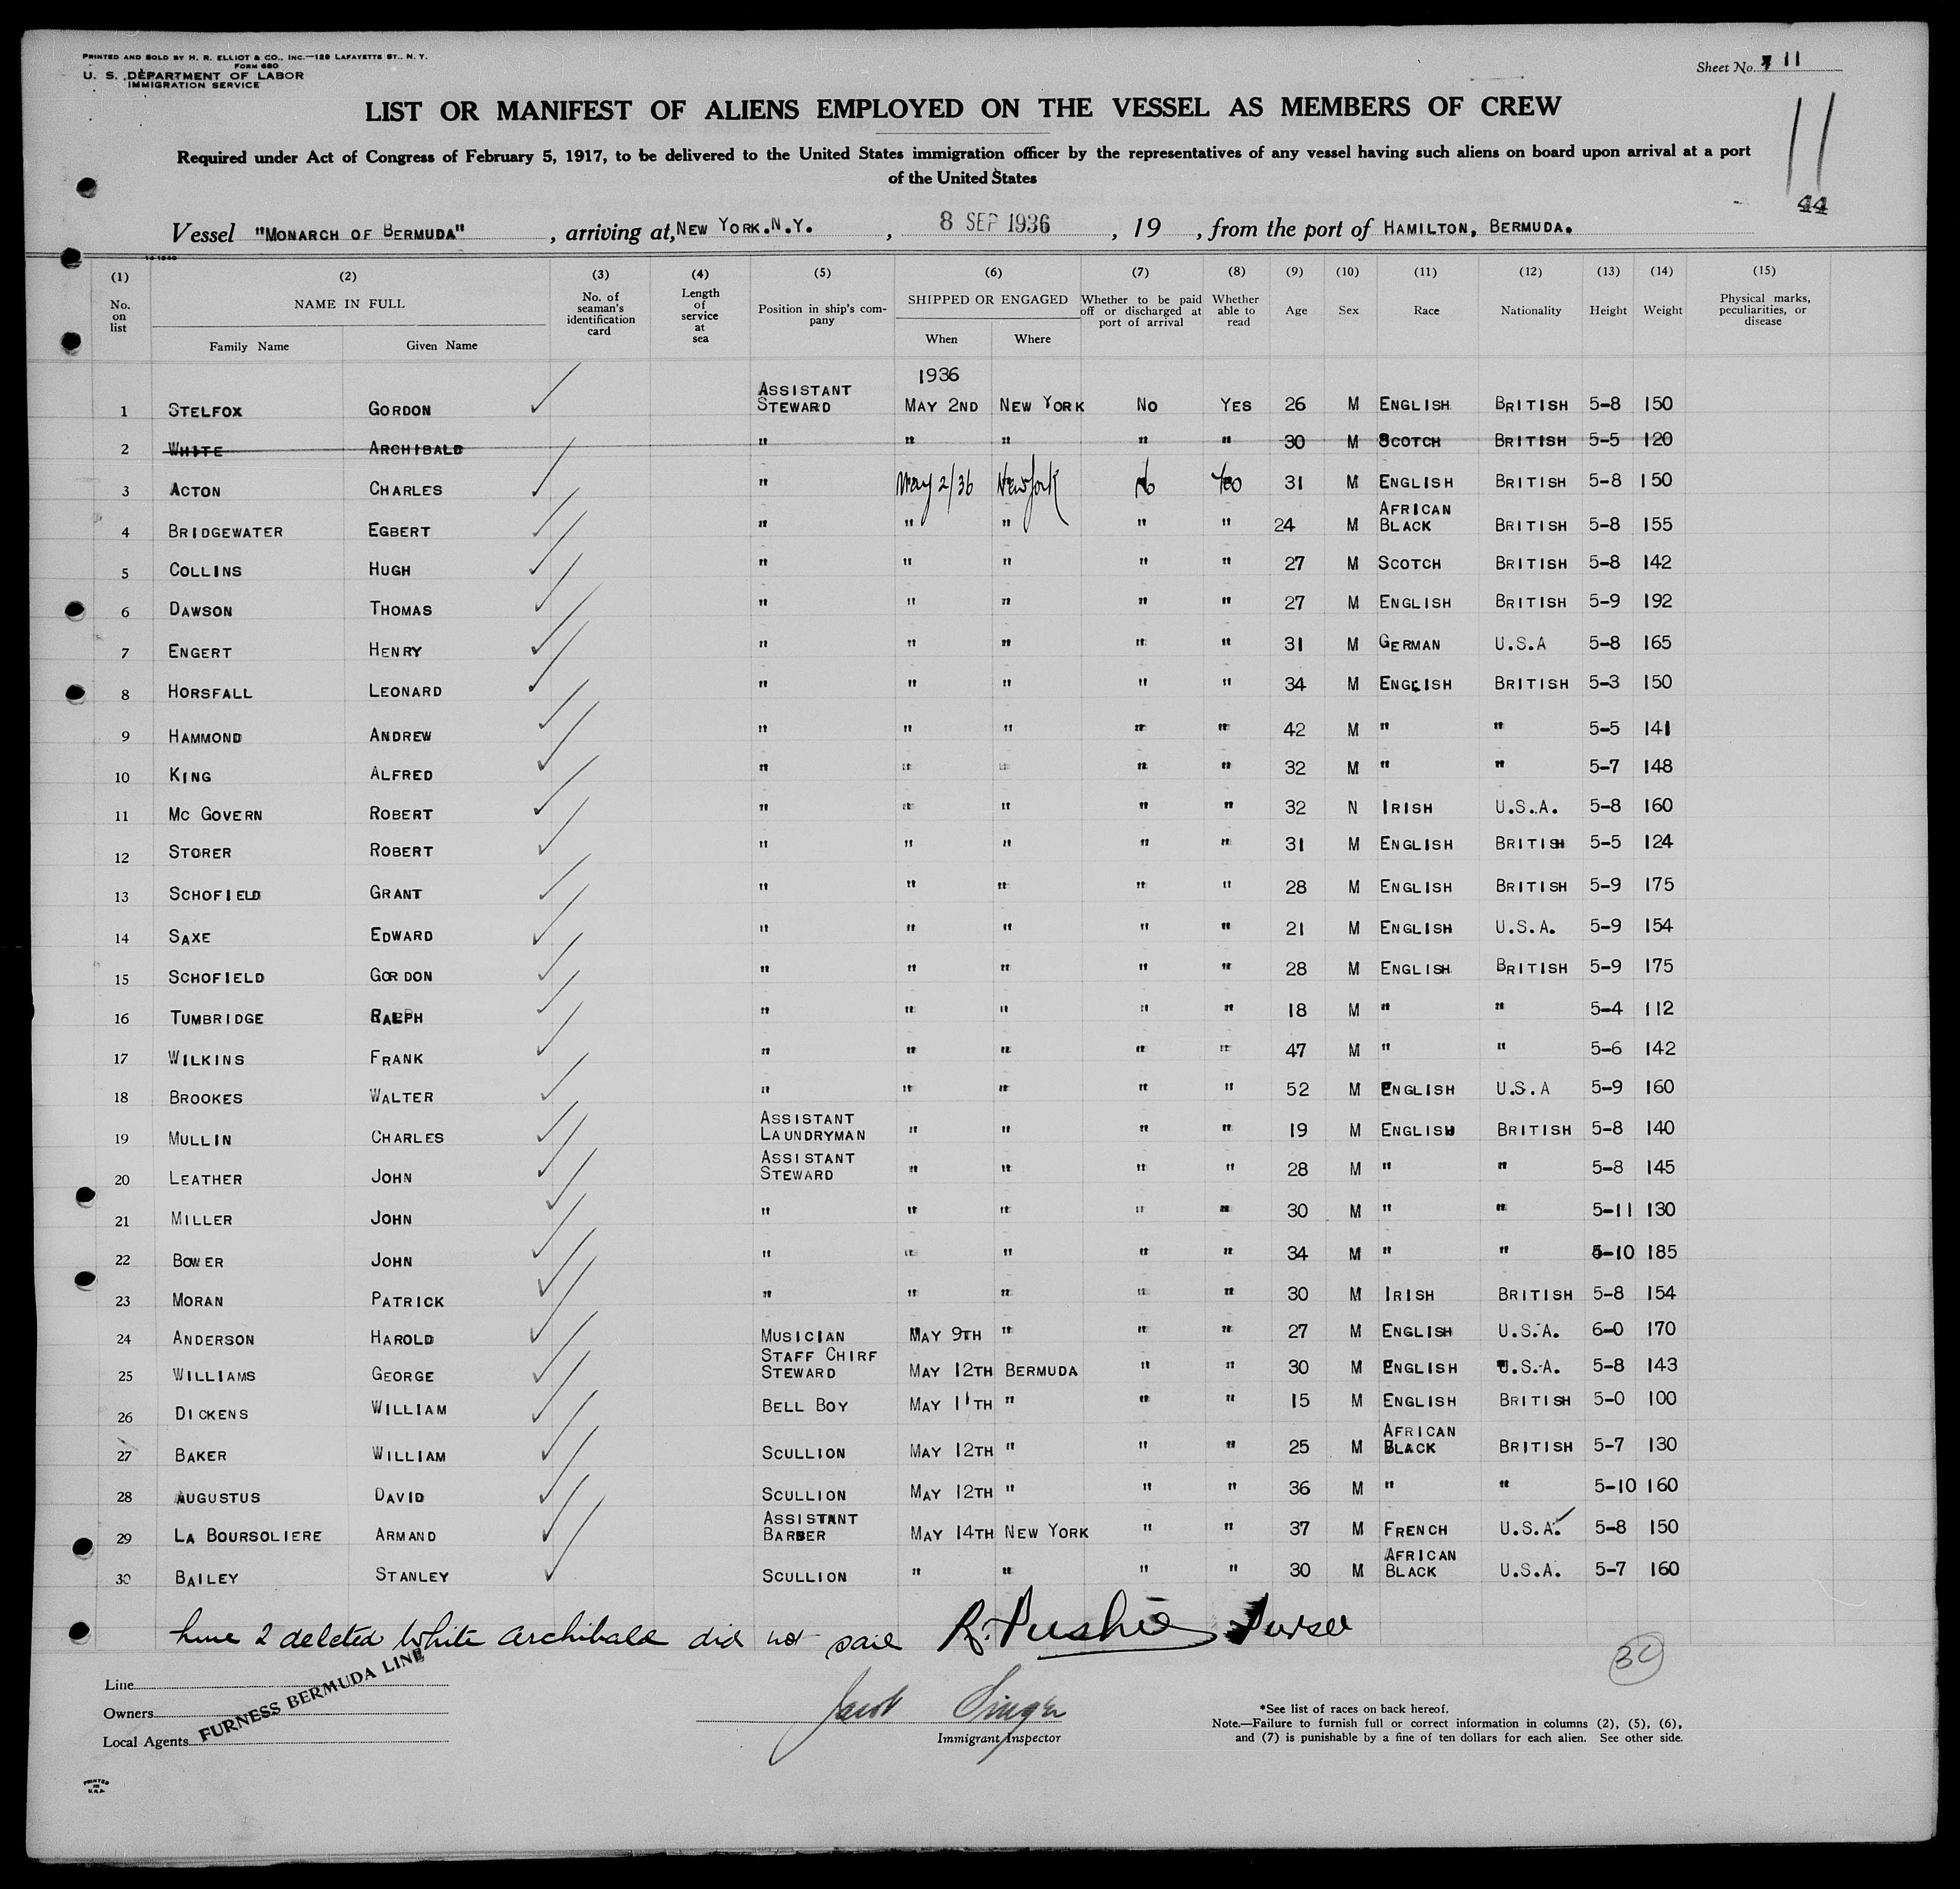 PRINTED AND SOLD BY H. R. ELLIOT & CO., INC.—129 LAFAYETTE ST., N. Y.
FORM 680
U. S. DEPARTMENT OF LABOR
IMMIGRATION SERVICE
Sheet No. 11
LIST OR MANIFEST OF ALIENS EMPLOYED ON THE VESSEL AS MEMBERS OF CREW
11
Required under Act of Congress of February 5, 1917, to be delivered to the United States immigration officer by the representatives of any vessel having such aliens on board upon arrival at a port
of the United States
44
Vessel "MONARCH OF BERMUDA", arriving at, NEW YORK.N.Y., 8 SEP 1936, 19 , from the port of HAMILTON, BERMUDA.
(1) (2) (3) (4) (5) (6) (7) (8) (9) (10) (11) (12) (13) (14) (15)
No. on list NAME IN FULL Family Name Given Name No. of seaman's identification card Length of service at sea Position in ship's company SHIPPED OR ENGAGED When Where Whether to be paid off or discharged at port of arrival Whether able to read Age Sex Race Nationality Height Weight Physical marks, peculiarities, or disease
1936
1 STELFOX GORDON ASSISTANT STEWARD MAY 2ND NEW YORK NO YES 26 M ENGLISH BRITISH 5-8 150
2 WHITE ARCHIBALD " " " " " 30 M SCOTCH BRITISH 5-5 120
3 ACTON CHARLES " May 2/36 New York No Yes 31 M ENGLISH BRITISH 5-8 150
4 BRIDGEWATER EGBERT " " " " " 24 M AFRICAN BLACK BRITISH 5-8 155
5 COLLINS HUGH " " " " " 27 M SCOTCH BRITISH 5-8 142
6 DAWSON THOMAS " " " " " 27 M ENGLISH BRITISH 5-9 192
7 ENGERT HENRY " " " " " 31 M GERMAN U.S.A 5-8 165
8 HORSFALL LEONARD " " " " " 34 M ENGLISH BRITISH 5-3 150
9 HAMMOND ANDREW " " " " " 42 M " " 5-5 141
10 KING ALFRED " " " " " 32 M " " 5-7 148
11 MC GOVERN ROBERT " " " " " 32 N IRISH U.S.A. 5-8 160
12 STORER ROBERT " " " " " 31 M ENGLISH BRITISH 5-5 124
13 SCHOFIELD GRANT " " " " " 28 M ENGLISH BRITISH 5-9 175
14 SAXE EDWARD " " " " " 21 M ENGLISH U.S.A. 5-9 154
15 SCHOFIELD GORDON " " " " " 28 M ENGLISH BRITISH 5-9 175
16 TUMBRIDGE RALPH " " " " " 18 M " " 5-4 112
17 WILKINS FRANK " " " " " 47 M " " 5-6 142
18 BROOKES WALTER " " " " " 52 M ENGLISH U.S.A 5-9 160
19 MULLIN CHARLES ASSISTANT LAUNDRYMAN " " " " 19 M ENGLISH BRITISH 5-8 140
20 LEATHER JOHN ASSISTANT STEWARD " " " " 28 M " " 5-8 145
21 MILLER JOHN " " " " " 30 M " " 5-11 130
22 BOWER JOHN " " " " " 34 M " " 5-10 185
23 MORAN PATRICK " " " " " 30 M IRISH BRITISH 5-8 154
24 ANDERSON HAROLD MUSICIAN MAY 9TH " " " 27 M ENGLISH U.S.A. 6-0 170
25 WILLIAMS GEORGE STAFF CHIRF STEWARD MAY 12TH BERMUDA " " 30 M ENGLISH U.S.A. 5-8 143
26 DICKENS WILLIAM BELL BOY MAY 11TH " " " 15 M ENGLISH BRITISH 5-0 100
27 BAKER WILLIAM SCULLION MAY 12TH " " " 25 M AFRICAN BLACK BRITISH 5-7 130
28 AUGUSTUS DAVID SCULLION MAY 12TH " " " 36 M " " 5-10 160
29 LA BOURSOLIERE ARMAND ASSISTANT BARBER MAY 14TH NEW YORK " " 37 M FRENCH U.S.A. 5-8 150
30 BAILEY STANLEY SCULLION " " " " 30 M AFRICAN BLACK U.S.A. 5-7 160
Line 2 deleted White Archibald did not sail R. Pushie Purser
30
Line
Owners
Local Agents
FURNESS BERMUDA LINE
Jacob Singer
Immigrant Inspector
*See list of races on back hereof.
Note.—Failure to furnish full or correct information in columns (2), (5), (6),
and (7) is punishable by a fine of ten dollars for each alien. See other side.
PRINTED
IN
U.S.A.